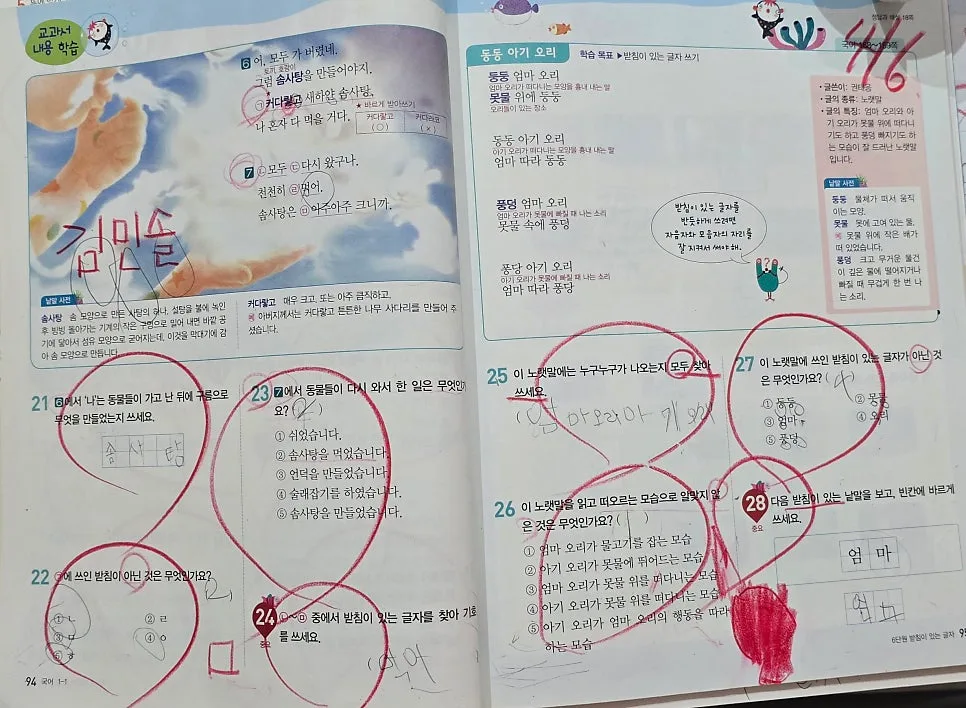 교과서
내용 학습
6 어, 모두 가 버렸네.
그럼 솜사탕을 만들어야지.
㉠커다랗고 새하얀 솜사탕,
나 혼자 다 먹을 거다.
★ 바르게 받아쓰기
커다랗고 커다라고
(○) (×)
7 ㉡모두 ㉢다시 왔구나.
천천히 ㉣먹어.
솜사탕은 ㉤아주아주 크니까.
김민솔
낱말 사전
솜사탕 솜 모양으로 만든 사탕의 하나. 설탕을 불에 녹인
후 빙빙 돌아가는 기계의 작은 구멍으로 밀어 내면 바깥 공
기에 닿아서 섬유 모양으로 굳어지는데, 이것을 막대기에 감
아 솜 모양으로 만듭니다.
커다랗고 매우 크고. 또는 아주 큼직하고.
예 아버지께서는 커다랗고 튼튼한 나무 사다리를 만들어 주
셨습니다.
21 6에서 '나'는 동물들이 가고 난 뒤에 구름으로
무엇을 만들었는지 쓰세요.
솜 사 탕
22 ㉠에 쓰인 받침이 아닌 것은 무엇인가요?
① ㄴ ② ㄹ
③ ㅁ ④ ㅇ
⑤ ㅎ
23 7에서 동물들이 다시 와서 한 일은 무엇인가
요? ( 2 )
① 쉬었습니다.
② 솜사탕을 먹었습니다.
③ 언덕을 만들었습니다.
④ 술래잡기를 하였습니다.
⑤ 솜사탕을 만들었습니다.
24 ㉡~㉤ 중에서 받침이 있는 글자를 찾아 기호
를 쓰세요.
중요
ㅁ
94 국어 1-1
정답과 해설 18쪽
동동 아기 오리
학습 목표 ▶받침이 있는 글자 쓰기
동동 엄마 오리
엄마 오리가 떠다니는 모양을 흉내 내는 말
못물 위에 동동
오리들이 있는 장소
동동 아기 오리
아기 오리가 떠다니는 모양을 흉내 내는 말
엄마 따라 동동
풍덩 엄마 오리
엄마 오리가 못물에 빠질 때 나는 소리
못물 속에 풍덩
퐁당 아기 오리
아기 오리가 못물에 빠질 때 나는 소리
엄마 따라 퐁당
받침이 있는 글자를
반듯하게 쓰려면
자음자와 모음자의 자리를
잘 지켜서 써야 해.
• 글쓴이: 권태응
• 글의 종류: 노랫말
• 글의 특징: 엄마 오리와 아
기 오리가 못물 위에 떠다니
기도 하고 풍덩 빠지기도 하
는 모습이 잘 드러난 노랫말
입니다.
낱말 사전
동동 물체가 떠서 움직
이는 모양.
못물 못에 고여 있는 물.
예 못물 위에 작은 배가
떠 있었습니다.
풍덩 크고 무거운 물건
이 깊은 물에 떨어지거나
빠질 때 무겁게 한 번 나
는 소리.
25 이 노랫말에는 누구누구가 나오는지 모두 찾아
쓰세요.
26 이 노랫말을 읽고 떠오르는 모습으로 알맞지 않
은 것은 무엇인가요? ( 1 )
① 엄마 오리가 물고기를 잡는 모습
② 아기 오리가 못물에 뛰어드는 모습
③ 엄마 오리가 못물 위를 떠다니는 모습
④ 아기 오리가 못물 위를 떠다니는 모습
⑤ 아기 오리가 엄마 오리의 행동을 따라
하는 모습
27 이 노랫말에 쓰인 받침이 있는 글자가 아닌 것
은 무엇인가요? ( 4 )
① 동동 ② 못물
③ 엄마 ④ 오리
⑤ 퐁당
28 다음 받침이 있는 낱말을 보고, 빈칸에 바르게
쓰세요.
중요
엄 마
엄 마
6단원 받침이 있는 글자